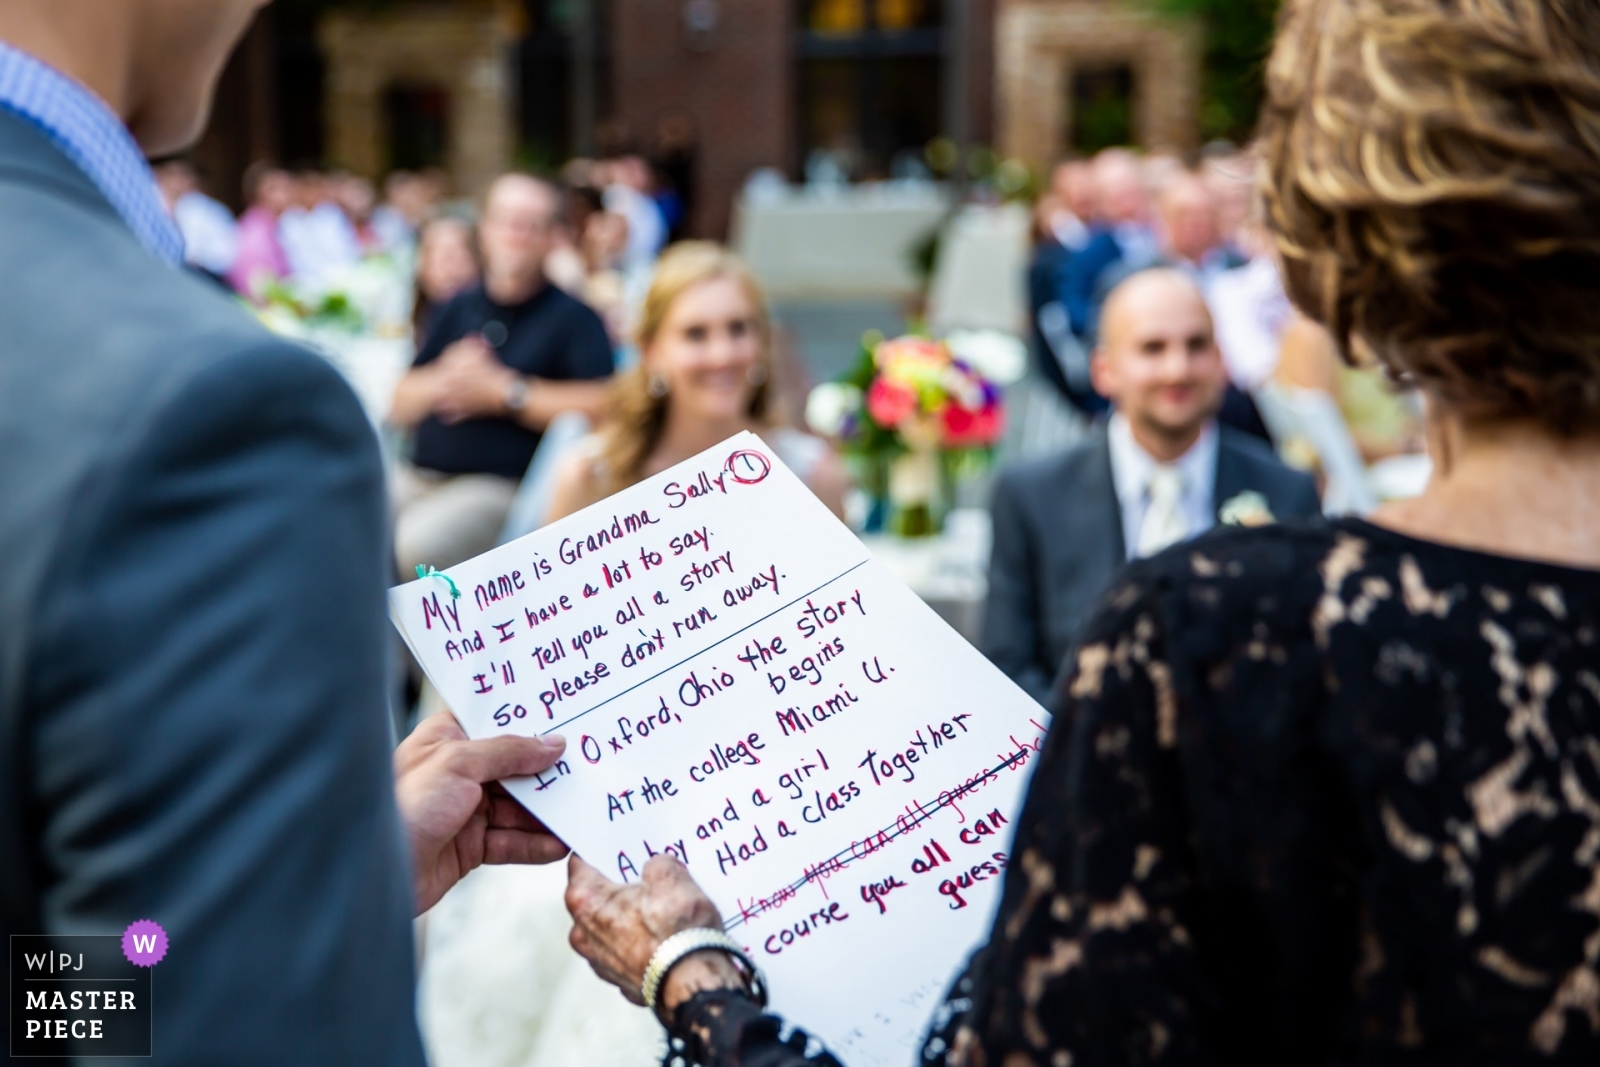 My name is Grandma Sally 1
And I have a lot to say.
I'll Tell you all a story
So please don't run away.
In Oxford, Ohio the story
begins
AT the college Miami U.
A boy and a girl
Had a class Together
Know you can all guess who
course you all can
guess
W|PJ
MASTER
PIECE
W